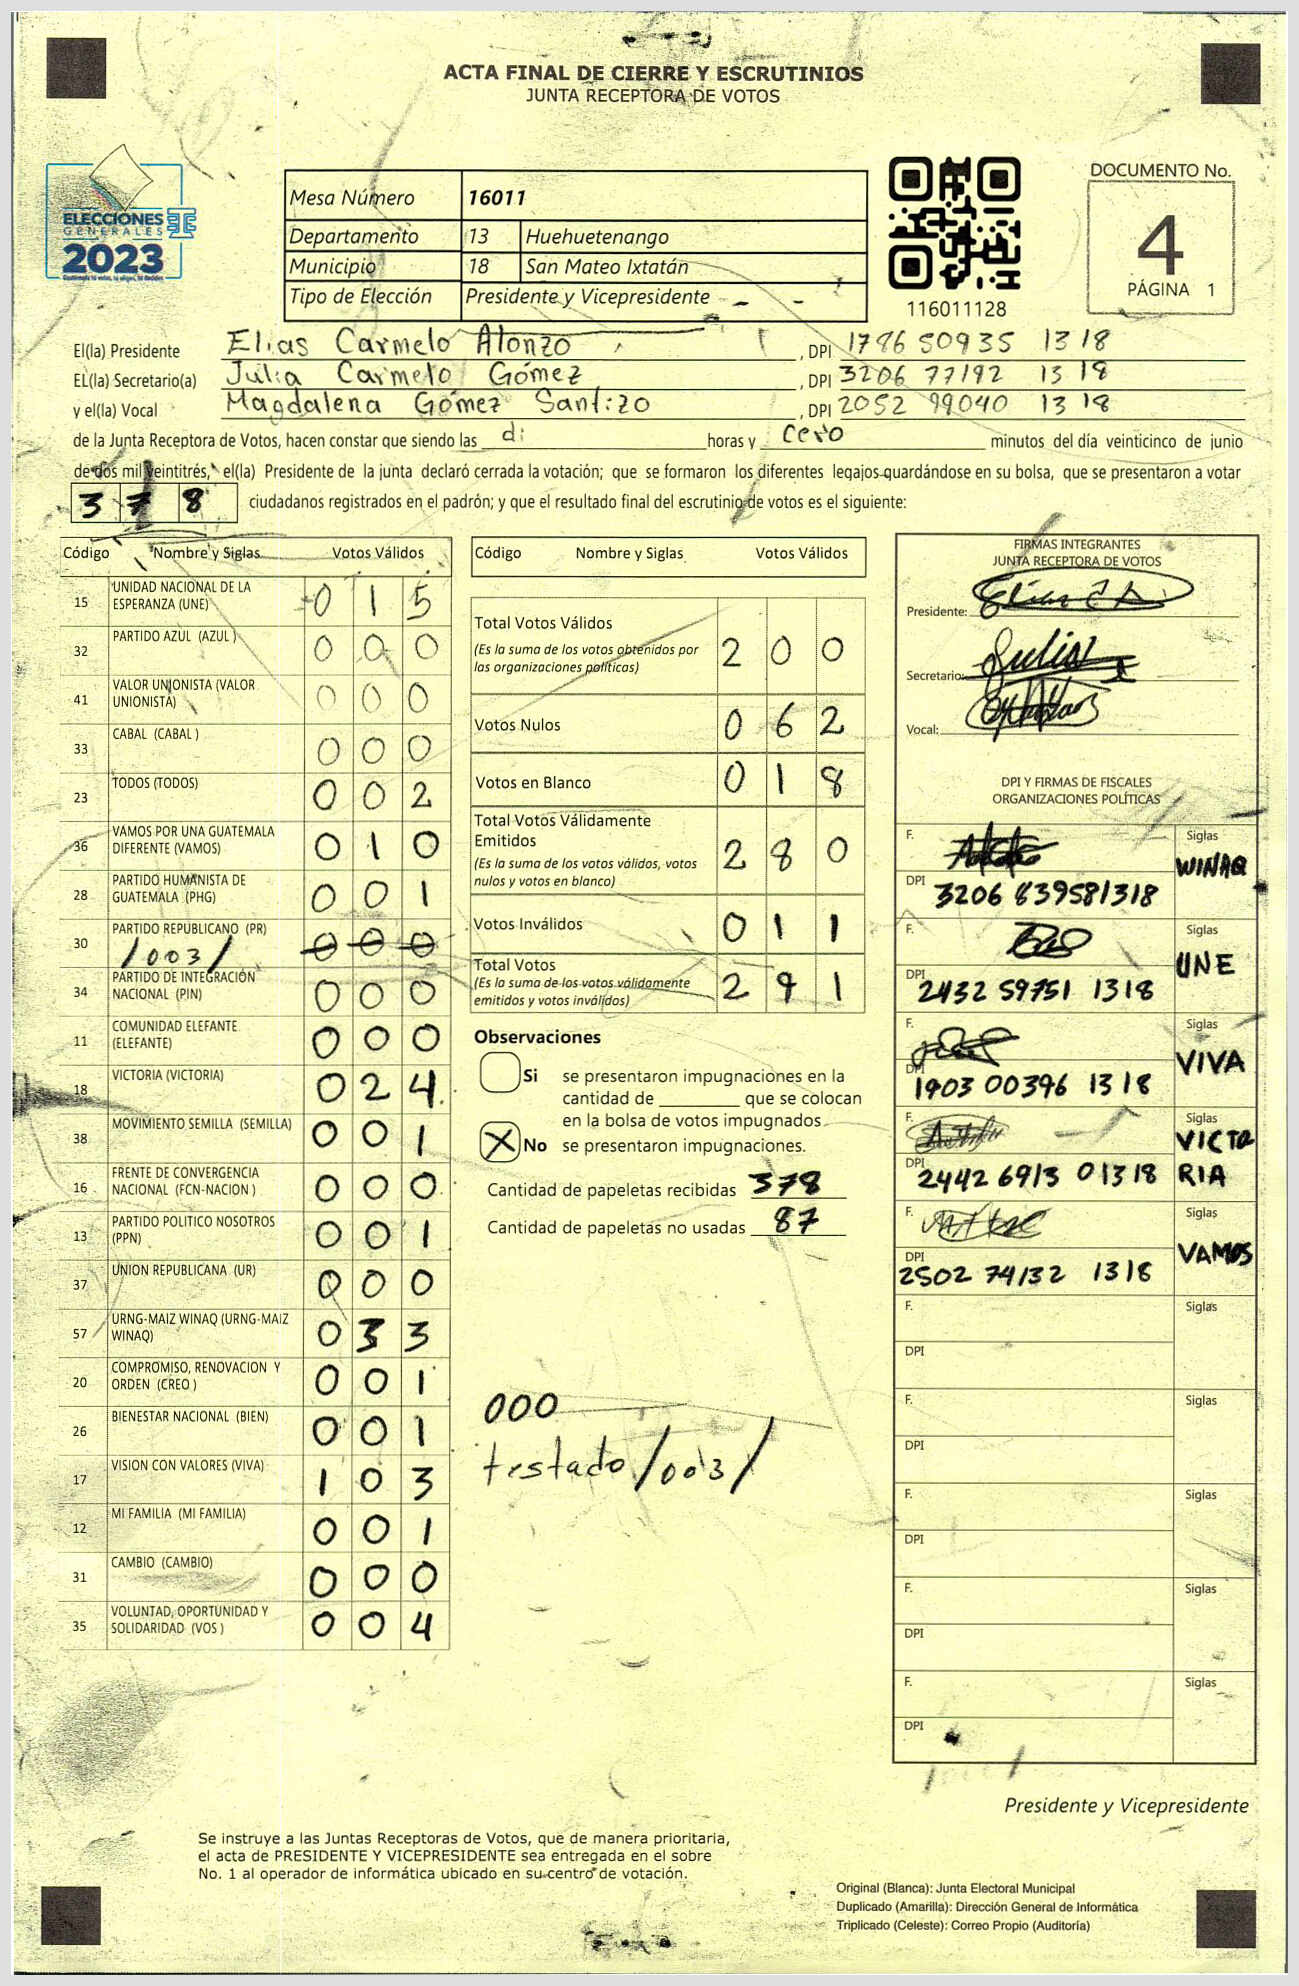 ACTA FINAL DE CIERRE Y ESCRUTINIOS
JUNTA RECEPTORA DE VOTOS
ELECCIONES
GENERALES
2023
Mesa Número 16011
Departamento 13 Huehuetenango
Municipio 18 San Mateo Ixtatán
Tipo de Elección Presidente y Vicepresidente
116011128
DOCUMENTO No.
4
PÁGINA 1
El(la) Presidente Elias Carmelo Alonzo , DPI 1786 50935 1318
EL(la) Secretario(a) Julia Carmelo Gómez , DPI 3206 77192 1318
y el(la) Vocal Magdalena Gómez Santizo , DPI 2052 99040 1318
de la Junta Receptora de Votos, hacen constar que siendo las di horas y cero minutos del día veinticinco de junio
de dos mil veintitrés, el(la) Presidente de la junta declaró cerrada la votación; que se formaron los diferentes legajos guardándose en su bolsa, que se presentaron a votar
378 ciudadanos registrados en el padrón; y que el resultado final del escrutinio de votos es el siguiente:
Código Nombre y Siglas Votos Válidos
15 UNIDAD NACIONAL DE LA ESPERANZA (UNE) 0 1 5
32 PARTIDO AZUL (AZUL ) 0 0 0
41 VALOR UNIONISTA (VALOR UNIONISTA) 0 0 0
33 CABAL (CABAL ) 0 0 0
23 TODOS (TODOS) 0 0 2
36 VAMOS POR UNA GUATEMALA DIFERENTE (VAMOS) 0 1 0
28 PARTIDO HUMANISTA DE GUATEMALA (PHG) 0 0 1
30 PARTIDO REPUBLICANO (PR) /003/ 0 0 0
34 PARTIDO DE INTEGRACIÓN NACIONAL (PIN) 0 0 0
11 COMUNIDAD ELEFANTE (ELEFANTE) 0 0 0
18 VICTORIA (VICTORIA) 0 2 4
38 MOVIMIENTO SEMILLA (SEMILLA) 0 0 1
16 FRENTE DE CONVERGENCIA NACIONAL (FCN-NACION ) 0 0 0
13 PARTIDO POLITICO NOSOTROS (PPN) 0 0 1
37 UNION REPUBLICANA (UR) 0 0 0
57 URNG-MAIZ WINAQ (URNG-MAIZ WINAQ) 0 3 3
20 COMPROMISO, RENOVACION Y ORDEN (CREO ) 0 0 1
26 BIENESTAR NACIONAL (BIEN) 0 0 1
17 VISION CON VALORES (VIVA) 1 0 3
12 MI FAMILIA (MI FAMILIA) 0 0 1
31 CAMBIO (CAMBIO) 0 0 0
35 VOLUNTAD, OPORTUNIDAD Y SOLIDARIDAD (VOS ) 0 0 4
Código Nombre y Siglas Votos Válidos
Total Votos Válidos
(Es la suma de los votos obtenidos por
las organizaciones políticas) 2 0 0
Votos Nulos 0 6 2
Votos en Blanco 0 1 8
Total Votos Válidamente
Emitidos
(Es la suma de los votos válidos, votos
nulos y votos en blanco) 2 8 0
Votos Inválidos 0 1 1
Total Votos
(Es la suma de los votos válidamente
emitidos y votos inválidos) 2 9 1
Observaciones
Si se presentaron impugnaciones en la
cantidad de ________ que se colocan
en la bolsa de votos impugnados
X No se presentaron impugnaciones.
Cantidad de papeletas recibidas 378
Cantidad de papeletas no usadas 87
000
testado /003/
FIRMAS INTEGRANTES
JUNTA RECEPTORA DE VOTOS
Presidente:
Secretario: Julia
Vocal:
DPI Y FIRMAS DE FISCALES
ORGANIZACIONES POLÍTICAS
F. Siglas WINAQ
DPI 3206 839581318
F. Siglas UNE
DPI 2432 59751 1318
F. Siglas VIVA
DPI 1903 00396 1318
F. Siglas VICTORIA
DPI 2442 6913 01318
F. Siglas VAMOS
DPI 2502 74132 1318
F. Siglas
DPI
F. Siglas
DPI
F. Siglas
DPI
F. Siglas
DPI
F. Siglas
DPI
Presidente y Vicepresidente
Se instruye a las Juntas Receptoras de Votos, que de manera prioritaria,
el acta de PRESIDENTE Y VICEPRESIDENTE sea entregada en el sobre
No. 1 al operador de informática ubicado en su centro de votación.
Original (Blanca): Junta Electoral Municipal
Duplicado (Amarilla): Dirección General de Informática
Triplicado (Celeste): Correo Propio (Auditoría)